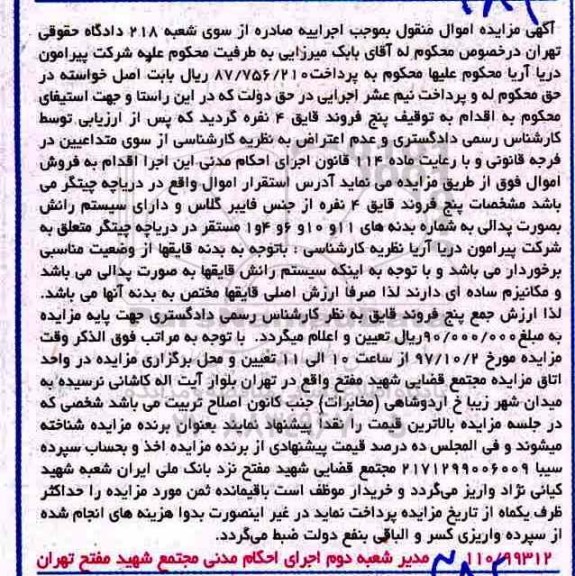 آگهی مزایده اموال منقول بموجب اجراییه صادره از سوی شعبه ۲۱۸ دادگاه حقوقی
تهران درخصوص محکوم له آقای بابک میرزایی به طرفیت محکوم علیه شرکت پیرامون
دریا آریا محکوم علیها محکوم به پرداخت۸۷/۷۵۶/۲۱۰ ریال بابت اصل خواسته در
حق محکوم له و پرداخت نیم عشر اجرایی در حق دولت که در این راستا و جهت استیفای
محکوم به اقدام به توقیف پنج فروند قایق ۴ نفره گردید که پس از ارزیابی توسط
کارشناس رسمی دادگستری و عدم اعتراض به نظریه کارشناسی از سوی متداعیین در
فرجه قانونی و با رعایت ماده ۱۱۴ قانون اجرای احکام مدنی این اجرا اقدام به فروش
اموال فوق از طریق مزایده می نماید آدرس استقرار اموال واقع در دریاچه چیتگر می
باشد مشخصات پنج فروند قایق ۴ نفره از جنس فایبر گلاس و دارای سیستم رانش
بصورت پدالی به شماره بدنه های ۱۱و ۱۰و ۶و ۴و۱ مستقر در دریاچه چیتگر متعلق به
شرکت پیرامون دریا آریا نظریه کارشناسی : باتوجه به بدنه قایقها از وضعیت مناسبی
برخوردار می باشد و با توجه به اینکه سیستم رانش قایقها به صورت پدالی می باشد
و مکانیزم ساده ای دارند لذا صرفا ارزش اصلی قایقها مختص به بدنه آنها می باشد.
لذا ارزش جمع پنج فروند قایق به نظر کارشناس رسمی دادگستری جهت پایه مزایده
به مبلغ۹۰/۰۰۰/۰۰۰ریال تعیین و اعلام میگردد. با توجه به مراتب فوق الذکر وقت
مزایده مورخ ۹۷/۱۰/۲ از ساعت ۱۰ الی ۱۱ تعیین و محل برگزاری مزایده در واحد
اتاق مزایده مجتمع قضایی شهید مفتح واقع در تهران بلوار آیت اله کاشانی نرسیده به
میدان شهر زیبا خ اردوشاهی (مخابرات) جنب کانون اصلاح تربیت می باشد شخصی که
در جلسه مزایده بالاترین قیمت را نقدا پیشنهاد نمایند بعنوان برنده مزایده شناخته
میشوند و فی المجلس ده درصد قیمت پیشنهادی از برنده مزایده اخذ و بحساب سپرده
سیبا ۲۱۷۱۲۹۹۰۰۶۰۰۹ مجتمع قضایی شهید مفتح نزد بانک ملی ایران شعبه شهید
کیائی نژاد واریز می‌گردد و خریدار موظف است باقیمانده ثمن مورد مزایده را حداکثر
ظرف یکماه از تاریخ مزایده پرداخت نماید در غیر اینصورت بدوا هزینه های انجام شده
از سپرده واریزی کسر و الباقی بنفع دولت ضبط می‌گردد.
۱۱۰/۹۹۳۱۲ مدیر شعبه دوم اجرای احکام مدنی مجتمع شهید مفتح تهران